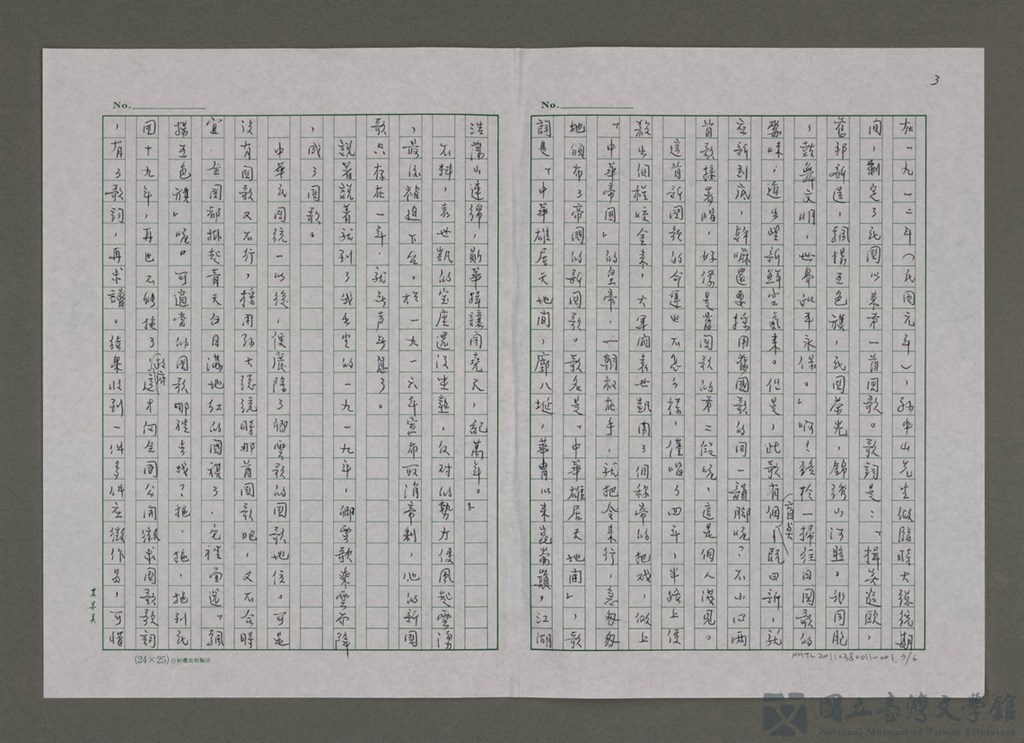 3
No.
在一九一二年（民國元年），孫中山先生做臨時大總統期
間，制定了民國以來第一首國歌。歌詞是：「揖美追歐，
舊邦新造，飄揚五色旗，民國榮光，錦繡山河照。我同胞
，鼓舞文明，世界和平永保。」啊！終於一掃往日國歌的
霉味，適生些新鮮空氣來。但是，此歌有個盲點，既曰新，就
應新到底，幹嘛還要採用舊國歌的同一韻腳呢？不小心兩
首歌接著唱，好像是舊國歌的第二段呢，這是個人淺見。
這首新國歌的命運也不怎麼樣，僅唱了四年，半路上便
殺出個程咬金來，大軍閥袁世凱開了個稱帝的把戲，做上
「中華帝國」的皇帝，一朝权在手，就把令來行，急匆匆
地頒布了帝國的新國歌。歌名是「中華雄居天地間」，歌
詞是「中華雄居天地間，廓八埏，華胄从來崑崙巔，江湖
No.
浩蕩山連綿，勛華揖讓開堯天，紀萬年。」
不料，袁世凱的宝座還沒坐熱，反对的勢力便風起雲湧
，最後被迫下台。於一九一六年宣布取消帝制，他的新國
歌只存在一年，就無声無息了。
說著說著就到了我出生的一九一九年，卿雲歌乘雲而降
，成了國歌。
中華民國統一以後，便廢除了卿雲歌的國歌地位。可是
沒有國歌又不行，搬用孫大總統時那首國歌吧，又不合時
宜。全國都掛起青天白日滿地紅的國旗了，怎麼「飄
揚五色旗」呢。可適當的國歌哪裡去找？拖，拖，拖到民
國十九年，再也不能拖了，政府這才向全國公開徵求國歌歌詞
，有了歌詞，再求譜。結果收到一件多件应徵作品，可惜
(24×25)
NMTL20110380011-001 3/6
國立臺灣文學館
National Museum of Taiwan Literature